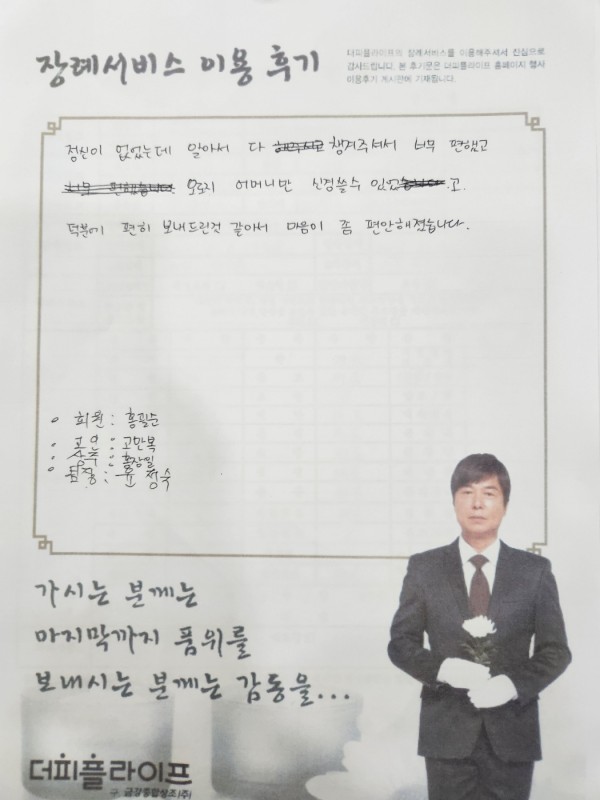 장례서비스 이용 후기
더피플라이프의 장례서비스를 이용해주셔서 진심으로
감사드립니다. 본 후기문은 더피플라이프 홈페이지 행사
이용후기 게시판에 기재됩니다.
정신이 없었는데 알아서 다 해주시고 챙겨주셔서 너무 편했고
너무 편했습니다. 오로지 어머니만 신경쓸수 있었습니다.고
덕분에 편히 보내드린것 같아서 마음이 좀 편안해졌습니다.
회원 : 홍필순
고인 : 고만복
상주 : 홍창일
팀장 : 윤정숙
가시는 분께는
마지막까지 품위를
보내시는 분께는 감동을...
더피플라이프
구. 금강종합상조(주)